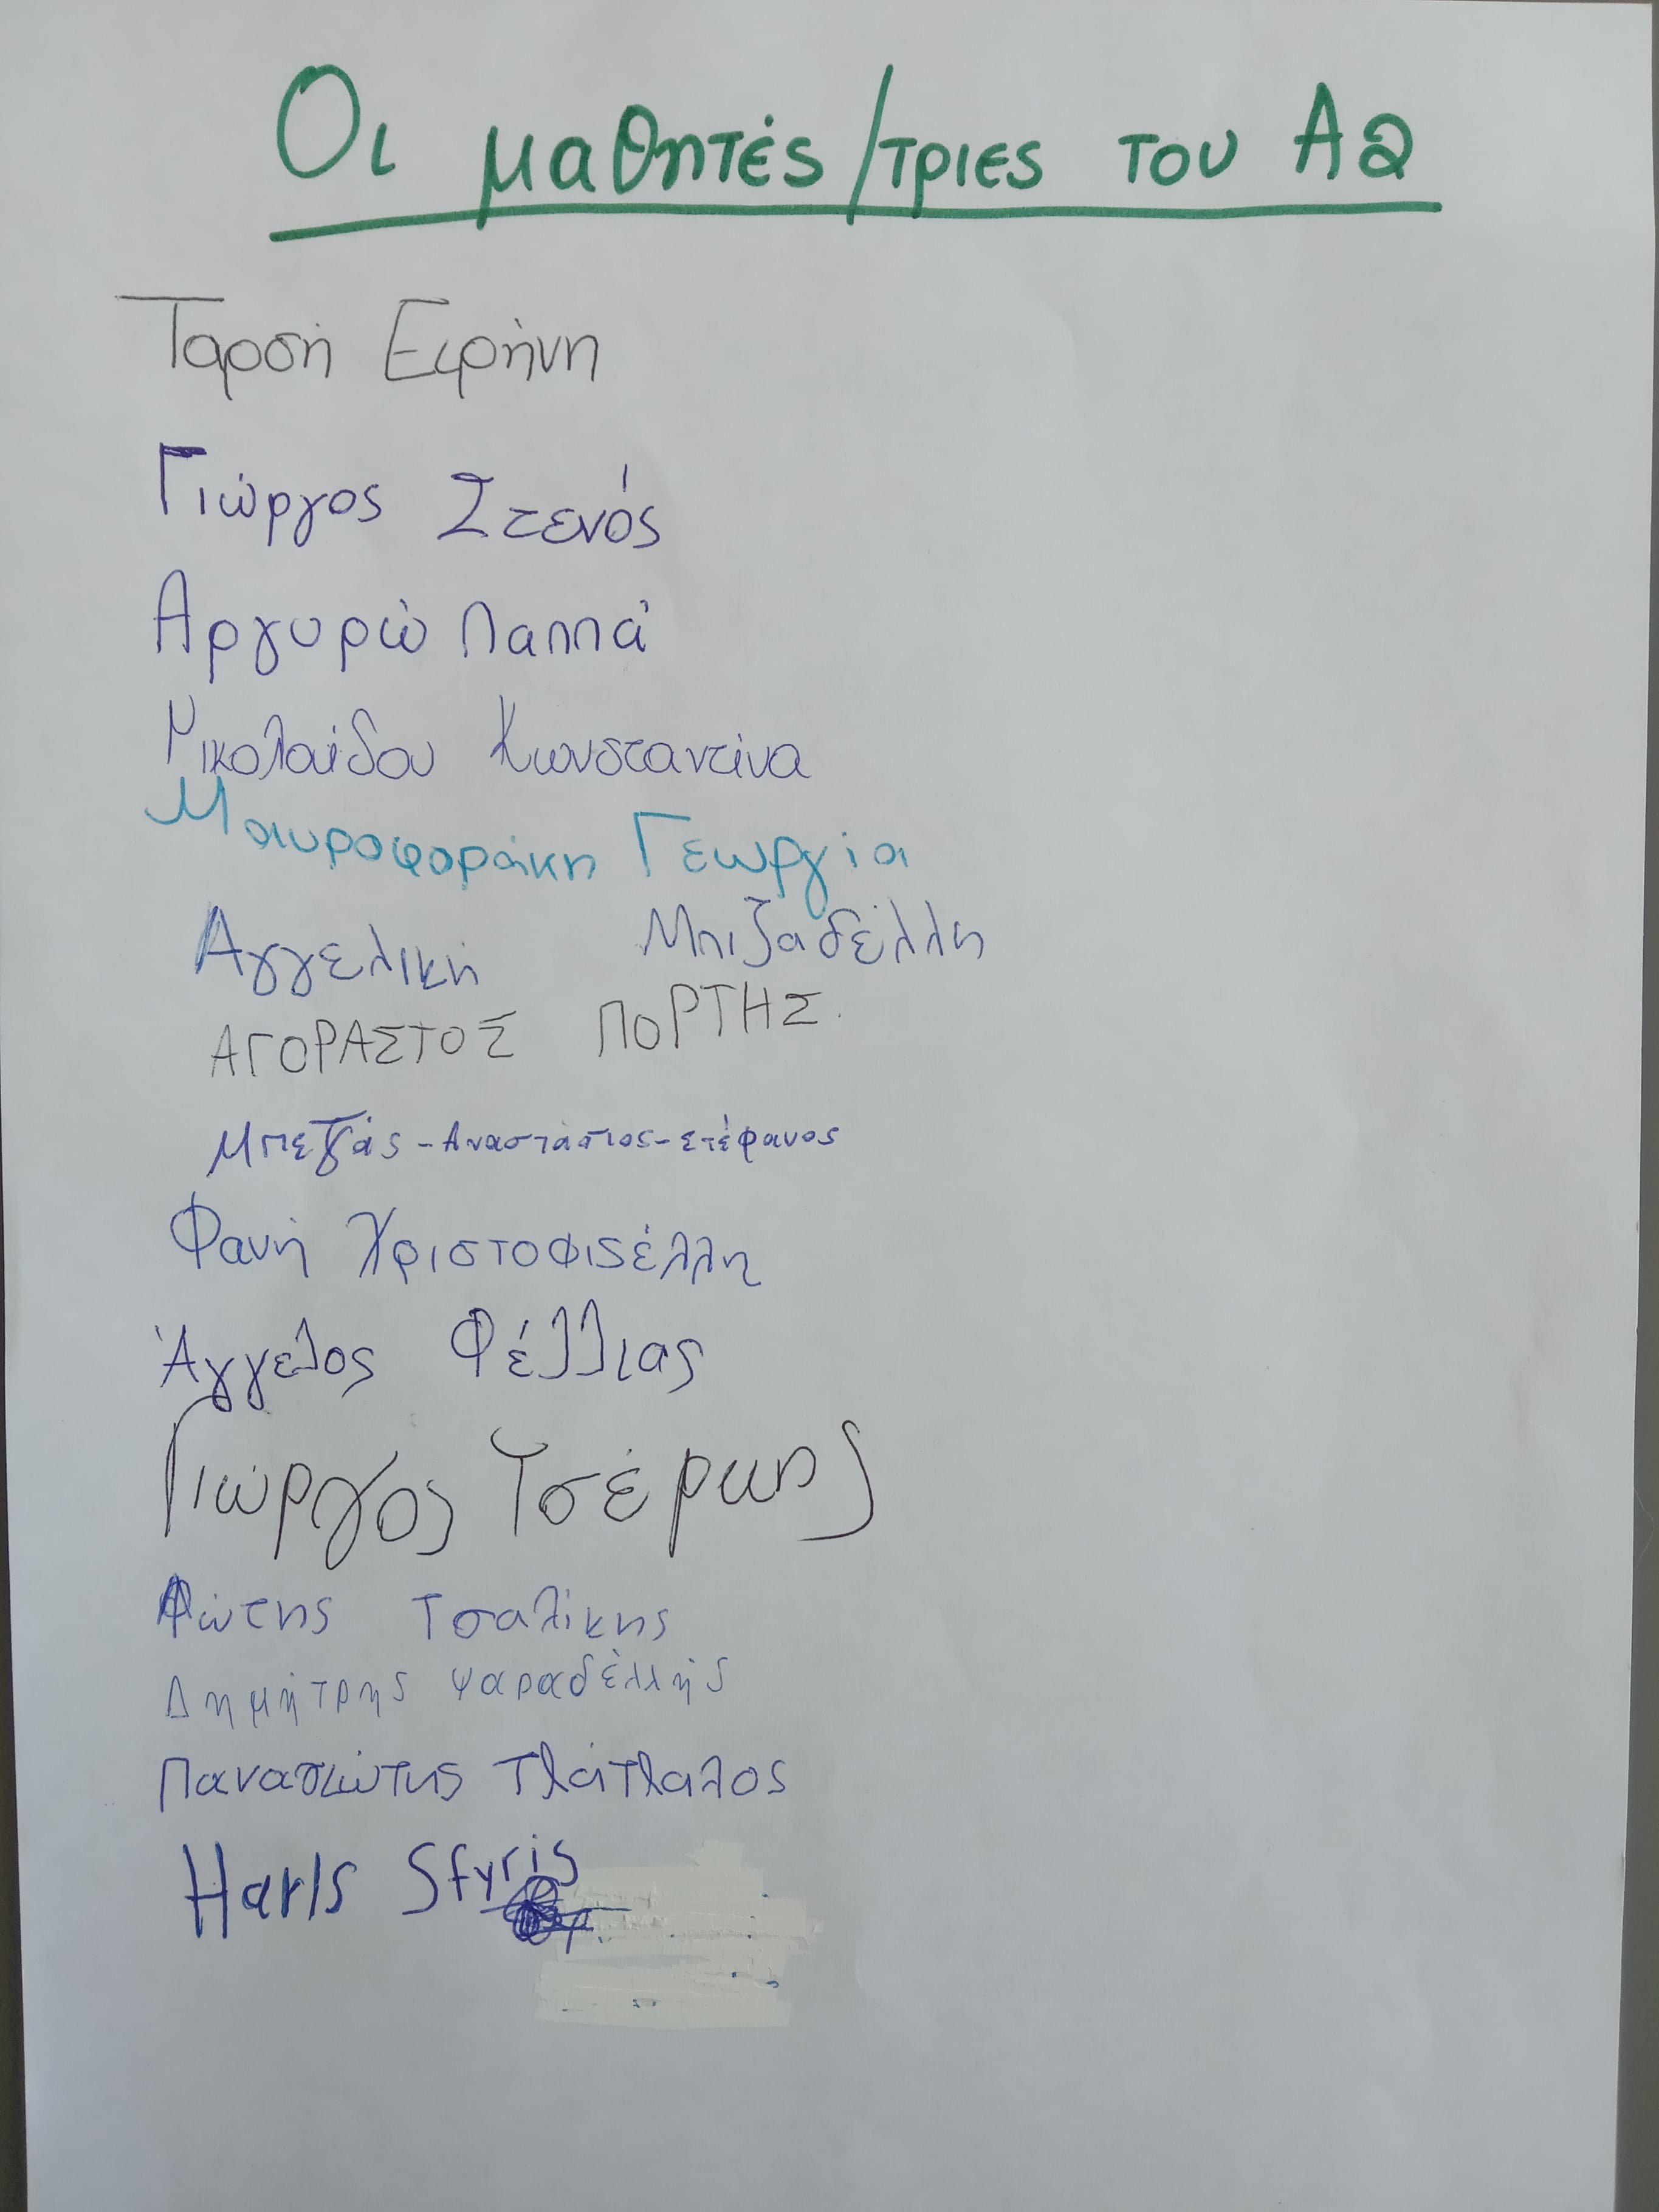 Οι μαθητές/τριες του Α2
Ταρσή Ειρήνη
Γιώργος Στενός
Αργυρώ Παππά
Νικολαΐδου Κωνσταντίνα
Μαυροφοράκη Γεωργία
Αγγελική Μπιζαδέλλη
ΑΓΟΡΑΣΤΟΣ ΠΟΡΤΗΣ.
Μπετζάς-Αναστάσιος-Στέφανος
Φανή Χριστοφιδέλλη
Άγγελος Φέλλιας
Γιώργος Τσέρωης
Φώτης Τσαλίκης
Δημήτρης Ψαραδέλλής
Παναγιώτης
Haris Sfyris